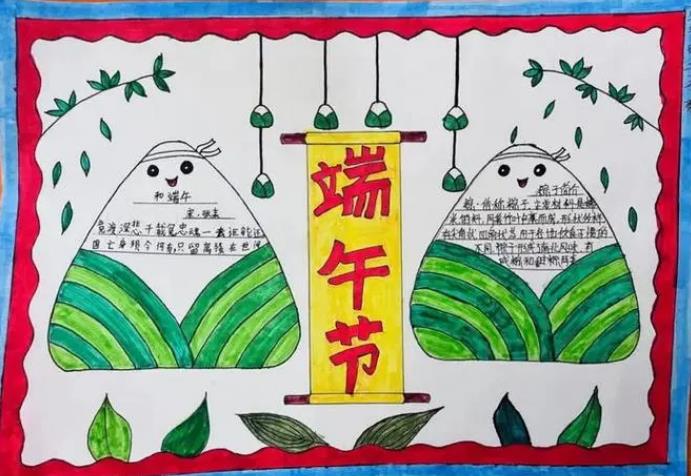 端午节
和端午
宋·张耒
竞渡深悲千载冤忠魂一去讵能还
国亡身殒今何有,只留离骚在世间
粽子简介
粽,俗称粽子,主要材料是糯
米馅料,用箬叶包裹而成,形状多样
有尖角状、四角状等.由于各地饮食习惯的
不同,粽子形成南北风味,有
咸粽和甜粽两类